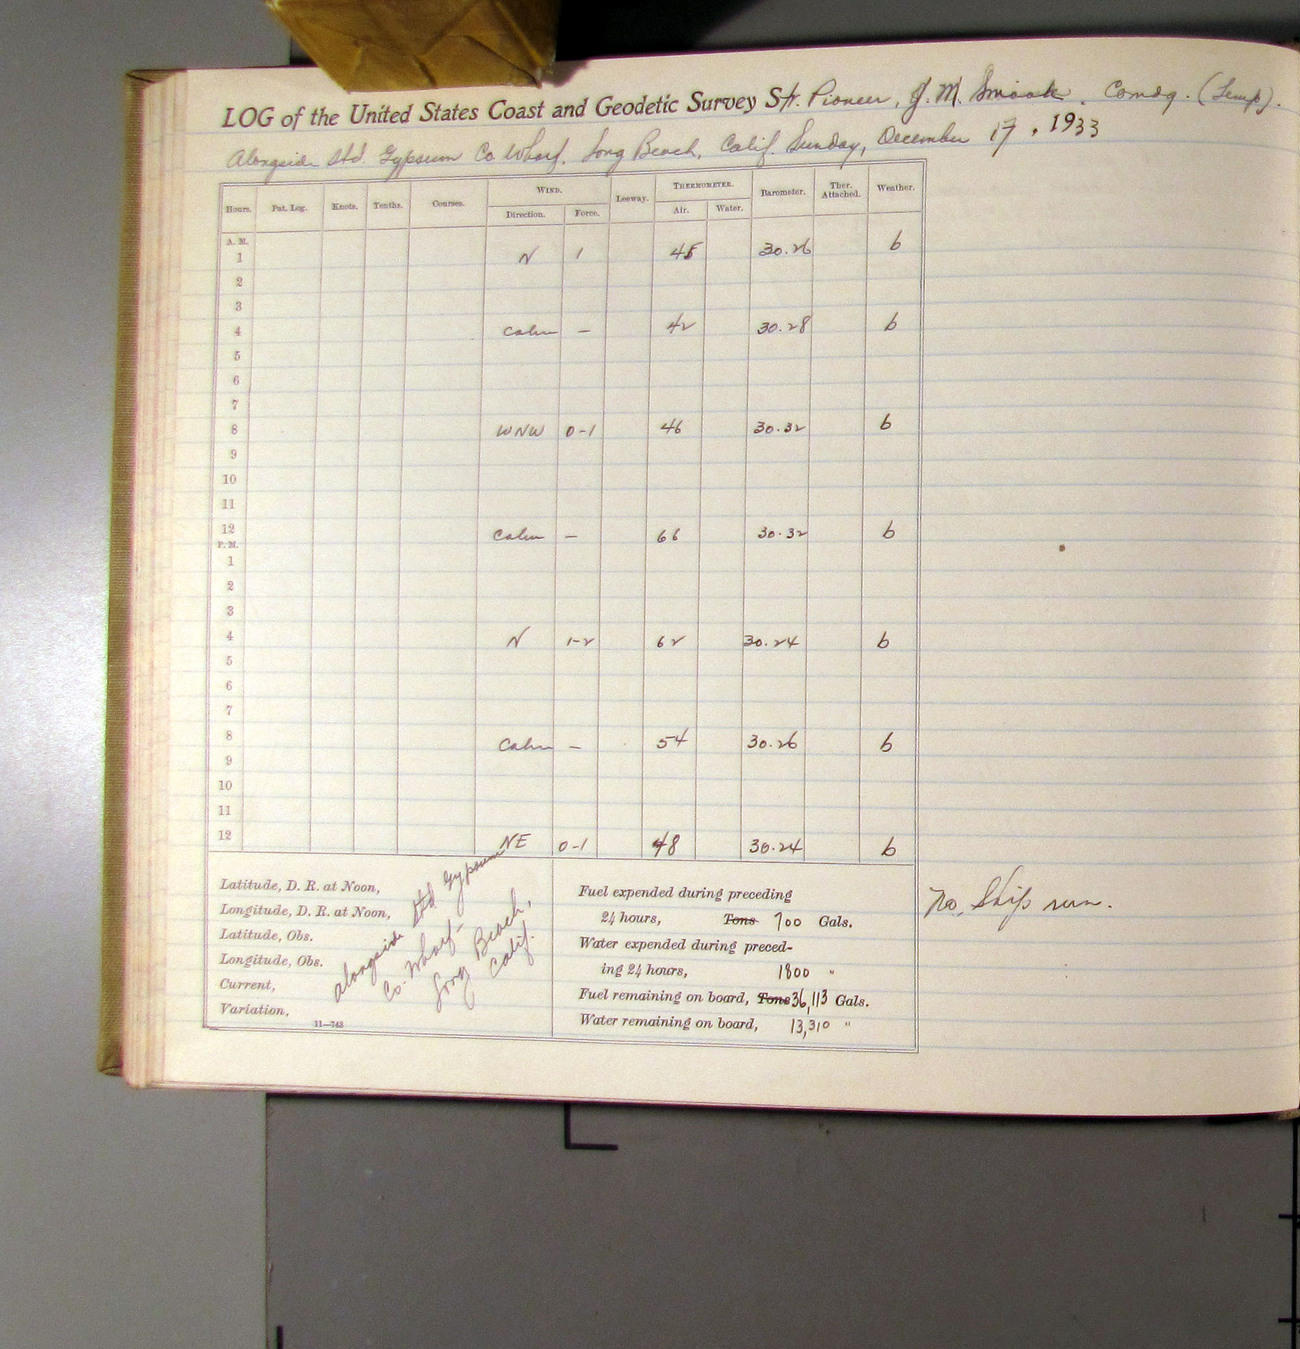 LOG of the United States Coast and Geodetic Survey Str. Pioneer, J. M. Smook, Comdg. (Temp).
Alongside Std. Gypsum Co. Wharf, Long Beach, Calif. Sunday, December 17, 1933
Hours. Pat. Log. Knots. Tenths. Courses. WIND. Leeway. THERMOMETER. Barometer. Ther. Attached. Weather.
Direction. Force. Air. Water.
A. M.
1 N 1 45 30.26 b
2
3
4 Calm – 42 30.28 b
5
6
7
8 WNW 0-1 46 30.32 b
9
10
11
12 Calm – 66 30.32 b
P. M.
1
2
3
4 N 1-2 62 30.24 b
5
6
7
8 Calm – 54 30.26 b
9
10
11
12 NE 0-1 48 30.24 b
Latitude, D. R. at Noon,
Longitude, D. R. at Noon,
Latitude, Obs.
Longitude, Obs.
Current,
Variation,
11—743
Alongside Std Gypsum
Co. Wharf-
Long Beach,
Calif.
Fuel expended during preceding
24 hours, Tons 700 Gals.
Water expended during preced-
ing 24 hours, 1800 "
Fuel remaining on board, Tons 36,113 Gals.
Water remaining on board, 13,310 "
No. Ship run.